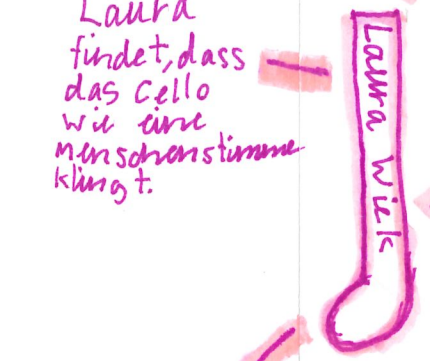 Laura
findet, dass
das Cello
wie eine
menschenstimme
klingt.
Laura Wiek